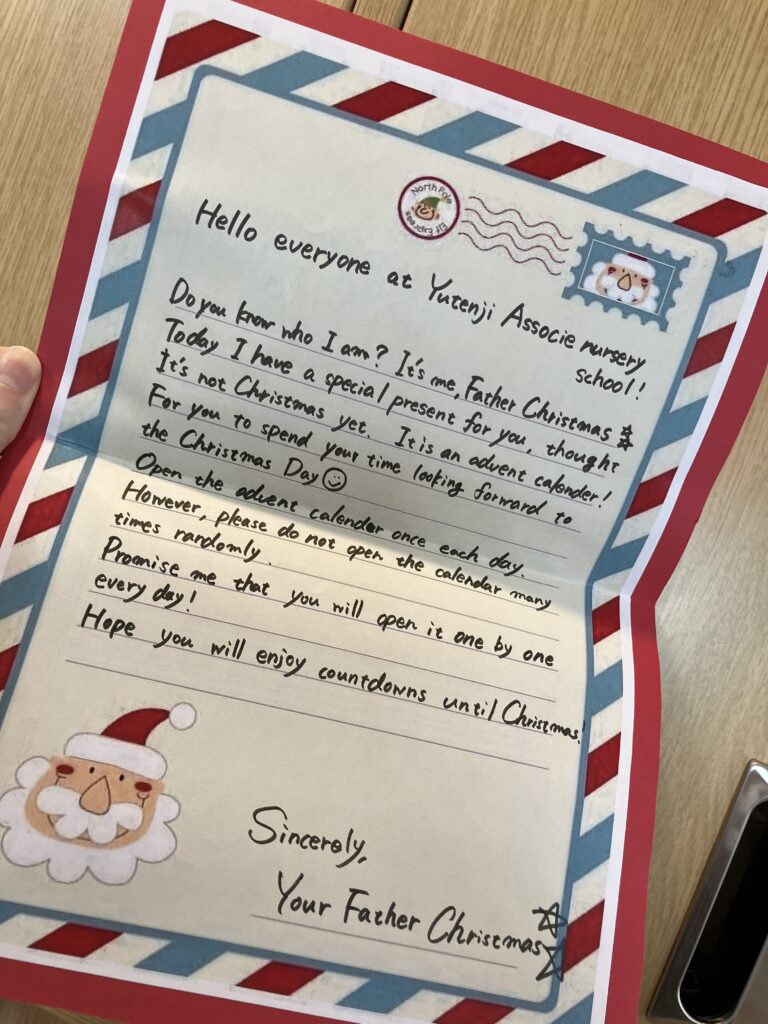 North Pole
Elf Express
Hello everyone at Yutenji Associe nursery
school!
Do you know who I am? It's me, Father Christmas
Today I have a special present for you, thought
It's not Christmas yet. It is an advent calender!
For you to spend your time looking forward to
the Christmas Day
Open the advent calender once each day.
However, please do not open the calendar many
times randomly.
Promise me that you will open it one by one
every day!
Hope you will enjoy countdowns until Christmas!
Sincerely,
Your Father Christmas